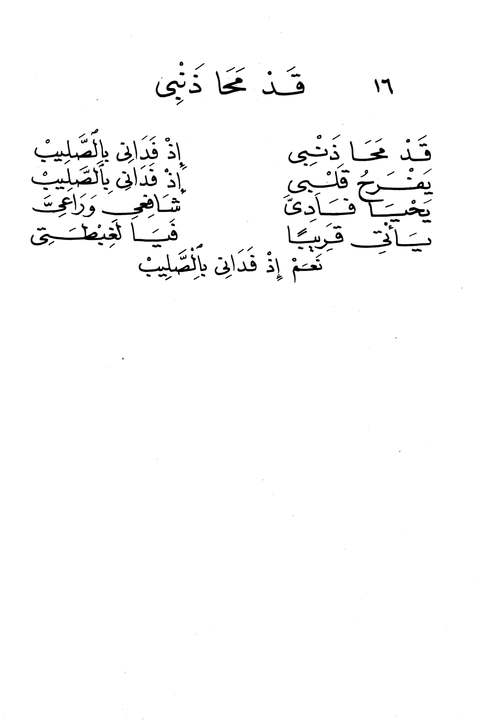 ١٦ قَدْ مَحَا ذَنْبِي
قَدْ مَحَا ذَنْبِي إِذْ فَدَانِي بِالصَّلِيبْ
يَفْرَحُ قَلْبِي إِذْ فَدَانِي بِالصَّلِيبْ
يَحْيَا فَادِيَّ شَافِعِي وَرَاعِيَّ
يَأْتِي قَرِيبًا فَيَا لَغِبْطَتِي
نَعَمْ إِذْ فَدَانِي بِالصَّلِيبْ